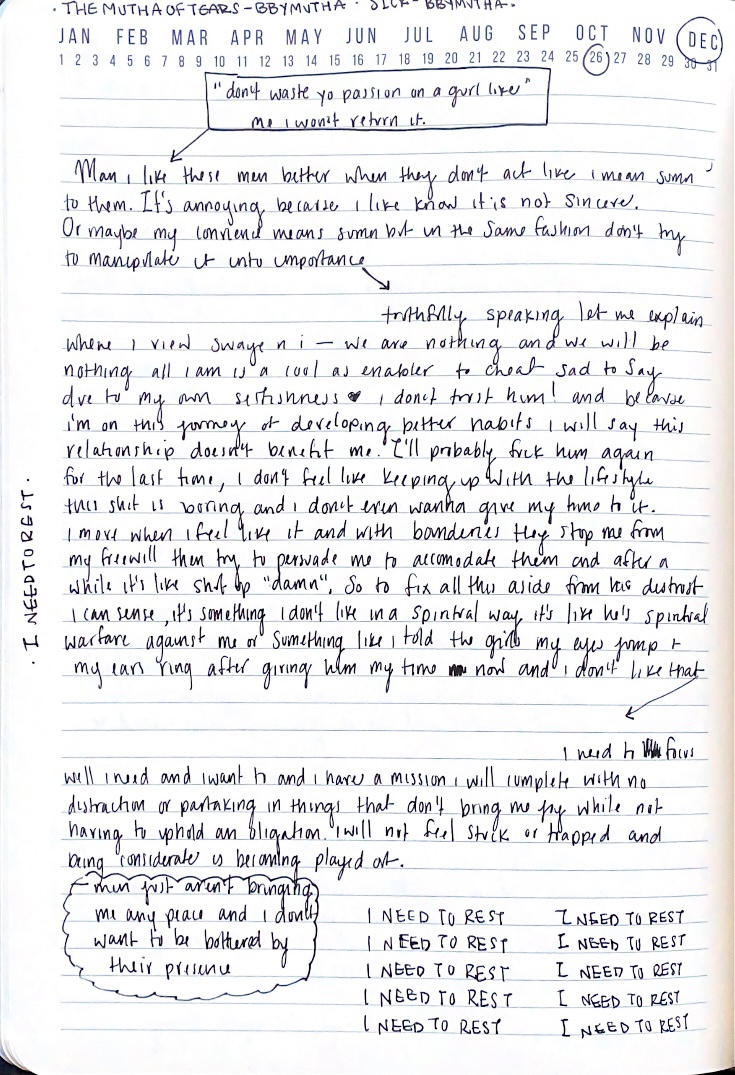 · THE MUTHA OF TEARS - BBYMUTHA · SICK - BBYMUTHA.
JAN FEB MAR APR MAY JUN JUL AUG SEP OCT NOV DEC
1 2 3 4 5 6 7 8 9 10 11 12 13 14 15 16 17 18 19 20 21 22 23 24 25 26 27 28 29 30 31
"don't waste yo passion on a gurl like"
me i won't return it.
Man i like these men better when they don't act like i mean sumn
to them. It's annoying because i like know it is not sincere.
Or maybe my convience means sumn but in the same fashion don't try
to manipulate it into importance
truthfully speaking let me explain
where i view swaye n i – we are nothing and we will be
nothing all i am is a cool as enabler to cheat sad to say
due to my own selfishness ♥ i don't trust him! and because
i'm on this journey of developing better habits i will say this
relationship doesn't benefit me. I'll probably fuck him again
for the last time, i don't feel like keeping up with the lifestyle
this shit is boring and i don't even wanna give my time to it.
I move when i feel like it and with bounderies they stop me from
my freewill then try to persuade me to accomodate them and after a
while it's like shut up "damn". So to fix all this aside from his distrust
i can sense, it's something i don't like in a spiritual way, it's like he's spiritual
warfare against me or something like i told the girls my eyes jump +
my ears ring after giving him my time now and i don't like that
I need to focus
well i need and i want to and i have a mission i will complete with no
distraction or partaking in things that don't bring me joy while not
having to uphold an obligation. I will not feel stuck or trapped and
being considerate is becoming played out.
– men just aren't bringing
me any peace and i don't
want to be bothered by
their presence
I NEED TO REST I NEED TO REST
I NEED TO REST I NEED TO REST
I NEED TO REST I NEED TO REST
I NEED TO REST I NEED TO REST
I NEED TO REST I NEED TO REST
· I NEED TO REST ·